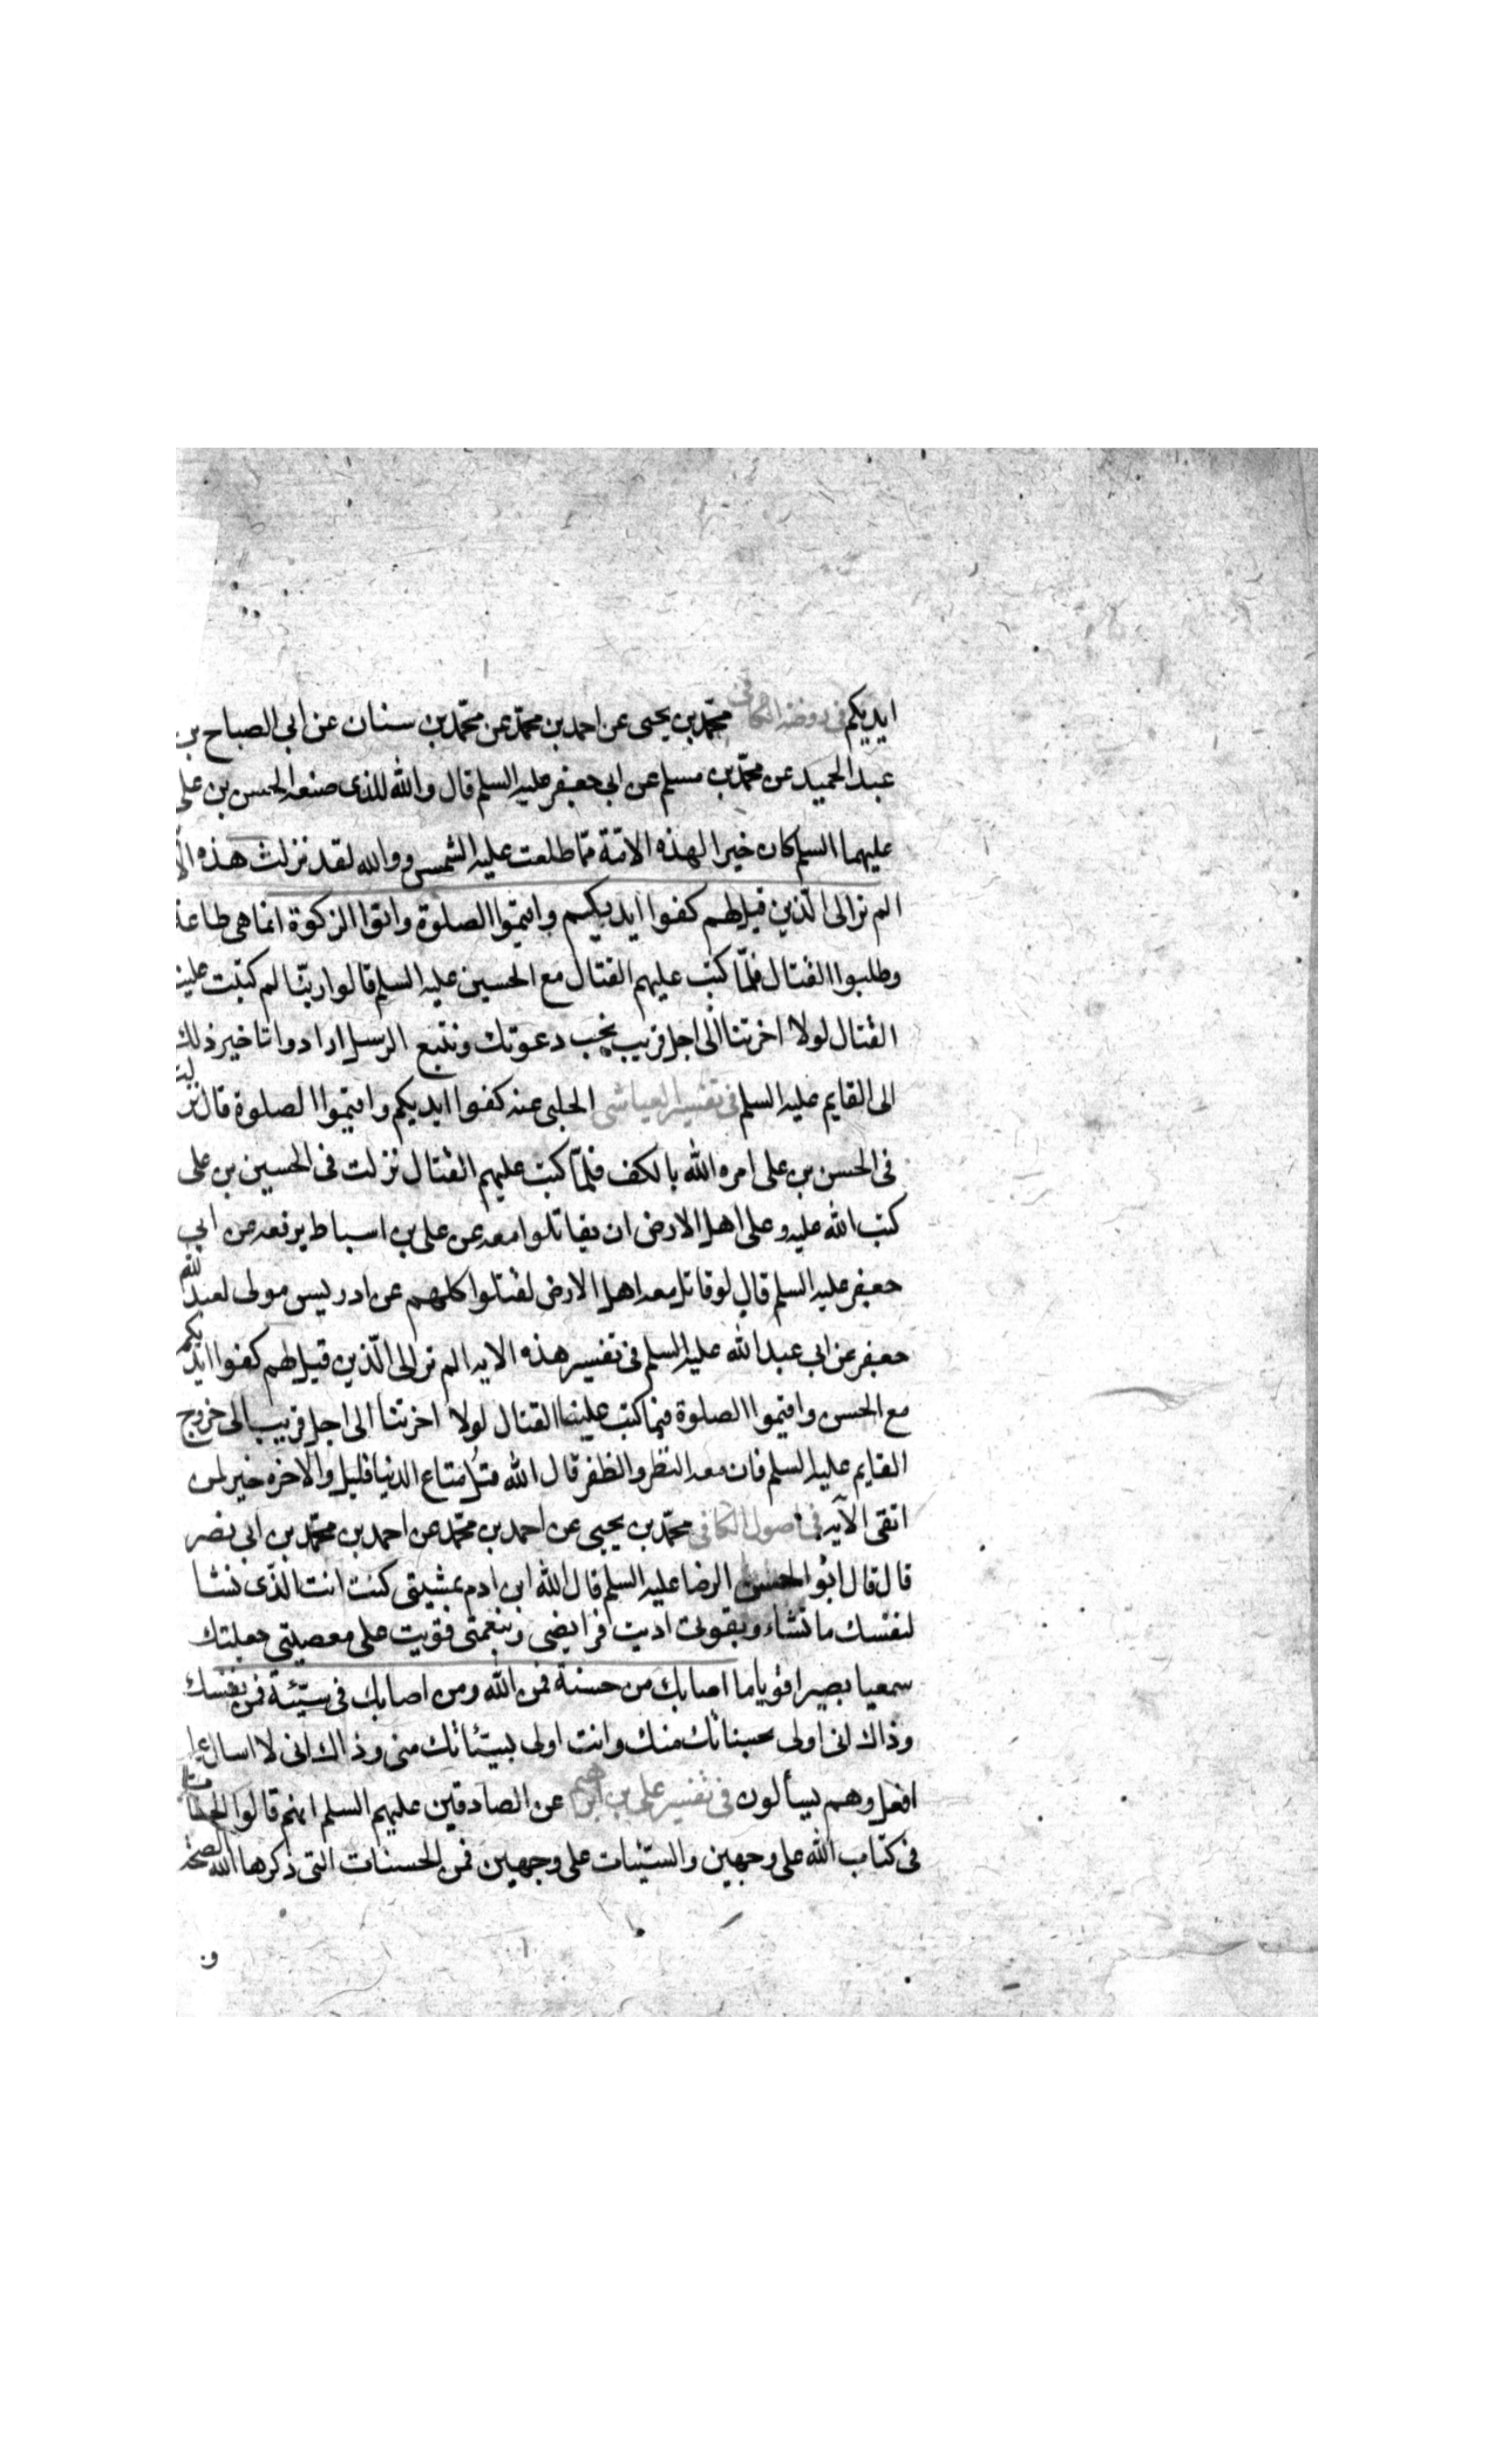 ايديكم فى روضة الكافى محمّد بن يحيى عن احمد بن محمّد عن محمّد بن سنان عن ابى الصباح بن
عبد الحميد عن محمّد بن مسلم عن ابى جعفر عليه السلم قال والله للذى صنعه الحسن بن على
عليهما السلم كان خيرا لهذه الامّة ممّا طلعت عليه الشمس ووالله لقد نزلت هذه
الم تر الى الّذين قيل لهم كفوا ايديكم واقيموا الصلوة واتوا الزكوة انما هى طاعة
وطلبوا القتال فلمّا كتب عليهم القتال مع الحسين عليه السلم قالوا ربّنا لم كتبت علينا
القتال لولا اخرتنا الى اجل قريب نجب دعوتك ونتبع الرسل ارادوا تاخير ذلك
الى القايم عليه السلم فى تفسير العياشى الحلبى عنه كفوا ايديكم واقيموا الصلوة قال نزلت
فى الحسن بن على امره الله بالكف فلمّا كتب عليهم القتال نزلت فى الحسين بن على
كتب الله عليه وعلى اهل الارض ان يقاتلوا معه عن على بن اسباط يرفعه عن ابى
جعفر عليه السلم قال لو قاتل معه اهل الارض لقتلوا كلهم عن ادريس مولى لعبد الله
جعفر عن ابى عبد الله عليه السلم فى تفسير هذه الايه الم تر الى الّذين قيل لهم كفوا ايديكم
مع الحسن واقيموا الصلوة فلما كتب علينا القتال لولا اخرتنا الى اجل قريب الى خروج
القايم عليه السلم فان معه النظر والظفر قال الله قل متاع الدنيا قليل والاخره خير لمن
اتقى الآيه فى اصول الكافى محمّد بن يحيى عن احمد بن محمّد عن احمد بن محمّد بن ابى نصر
قال قال ابو الحسن الرضا عليه السلم قال الله ابن ادم بمشيتى كنت انت الذّى تشا
لنفسك ما تشاء وبقوتى اديت فرايضى وبنعمتى قويت على معصيتى جعلتك
سمعيا بصيرا قويا ما اصابك من حسنة فمن الله ومن اصابك فى سيّئة فمن نفسك
وذاك انى اولى بحسناتك منك وانت اولى بسيّئاتك منى وذاك انى لا اسال عما
افعل وهم يسألون فى تفسير على بن ابرهيم عن الصادقين عليهم السلم انهم قالوا الحسنات
فى كتاب الله على وجهين والسّيّئات على وجهين فمن الحسنات التى ذكرها الله الصحة
و